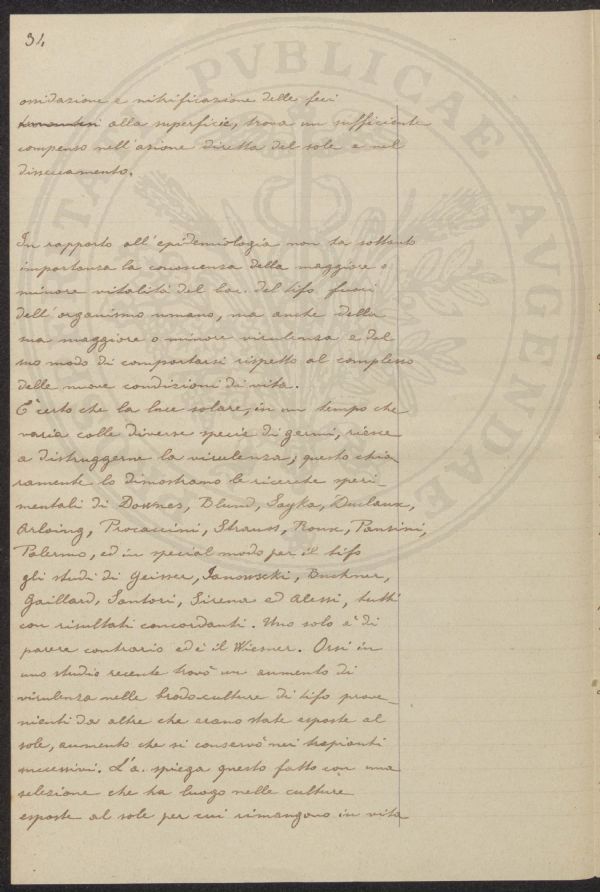 34
ossidazione e nitrificazione delle feci
alla superficie, trova un sufficiente
compenso nell'azione diretta del sole e nel
disseccamento.
In rapporto all'epidemiologia non ha soltanto
importanza la conoscenza della maggiore o
minore vitalità del bac. del tifo fuori
dell'organismo umano, ma anche della
sua maggiore o minore virulenza e del
suo modo di comportarsi rispetto al complesso
delle nuove condizioni di vita.
È certo che la luce solare, in un tempo che
varia colle diverse specie di germi, riesce
a distruggerne la virulenza; questo chia
ramente lo dimostrano le ricerche speri-
mentali di Downes, Blund, Soyka, Duclaux,
Arloing, Procaccini, Strauss, Roux, Pansini,
Palermo, ed in special modo per il tifo
gli studi di Geisser, Janowscki, Buchner,
Gaillard, Santori, Sirena ed Alessi, tutti
con risultati concordanti. Uno solo è di
parere contrario ed è il Wiesner. Orsi in
uno studio recente trovò un aumento di
virulenza nelle brodo-culture di tifo prove-
nienti da altre che erano state esposte al
sole, aumento che si conservò nei trapianti
successivi. L'a. spiega questo fatto con una
selezione che ha luogo nelle culture
esposte al sole per cui rimangono in vita
TA PVBLICAE AVGENDAE